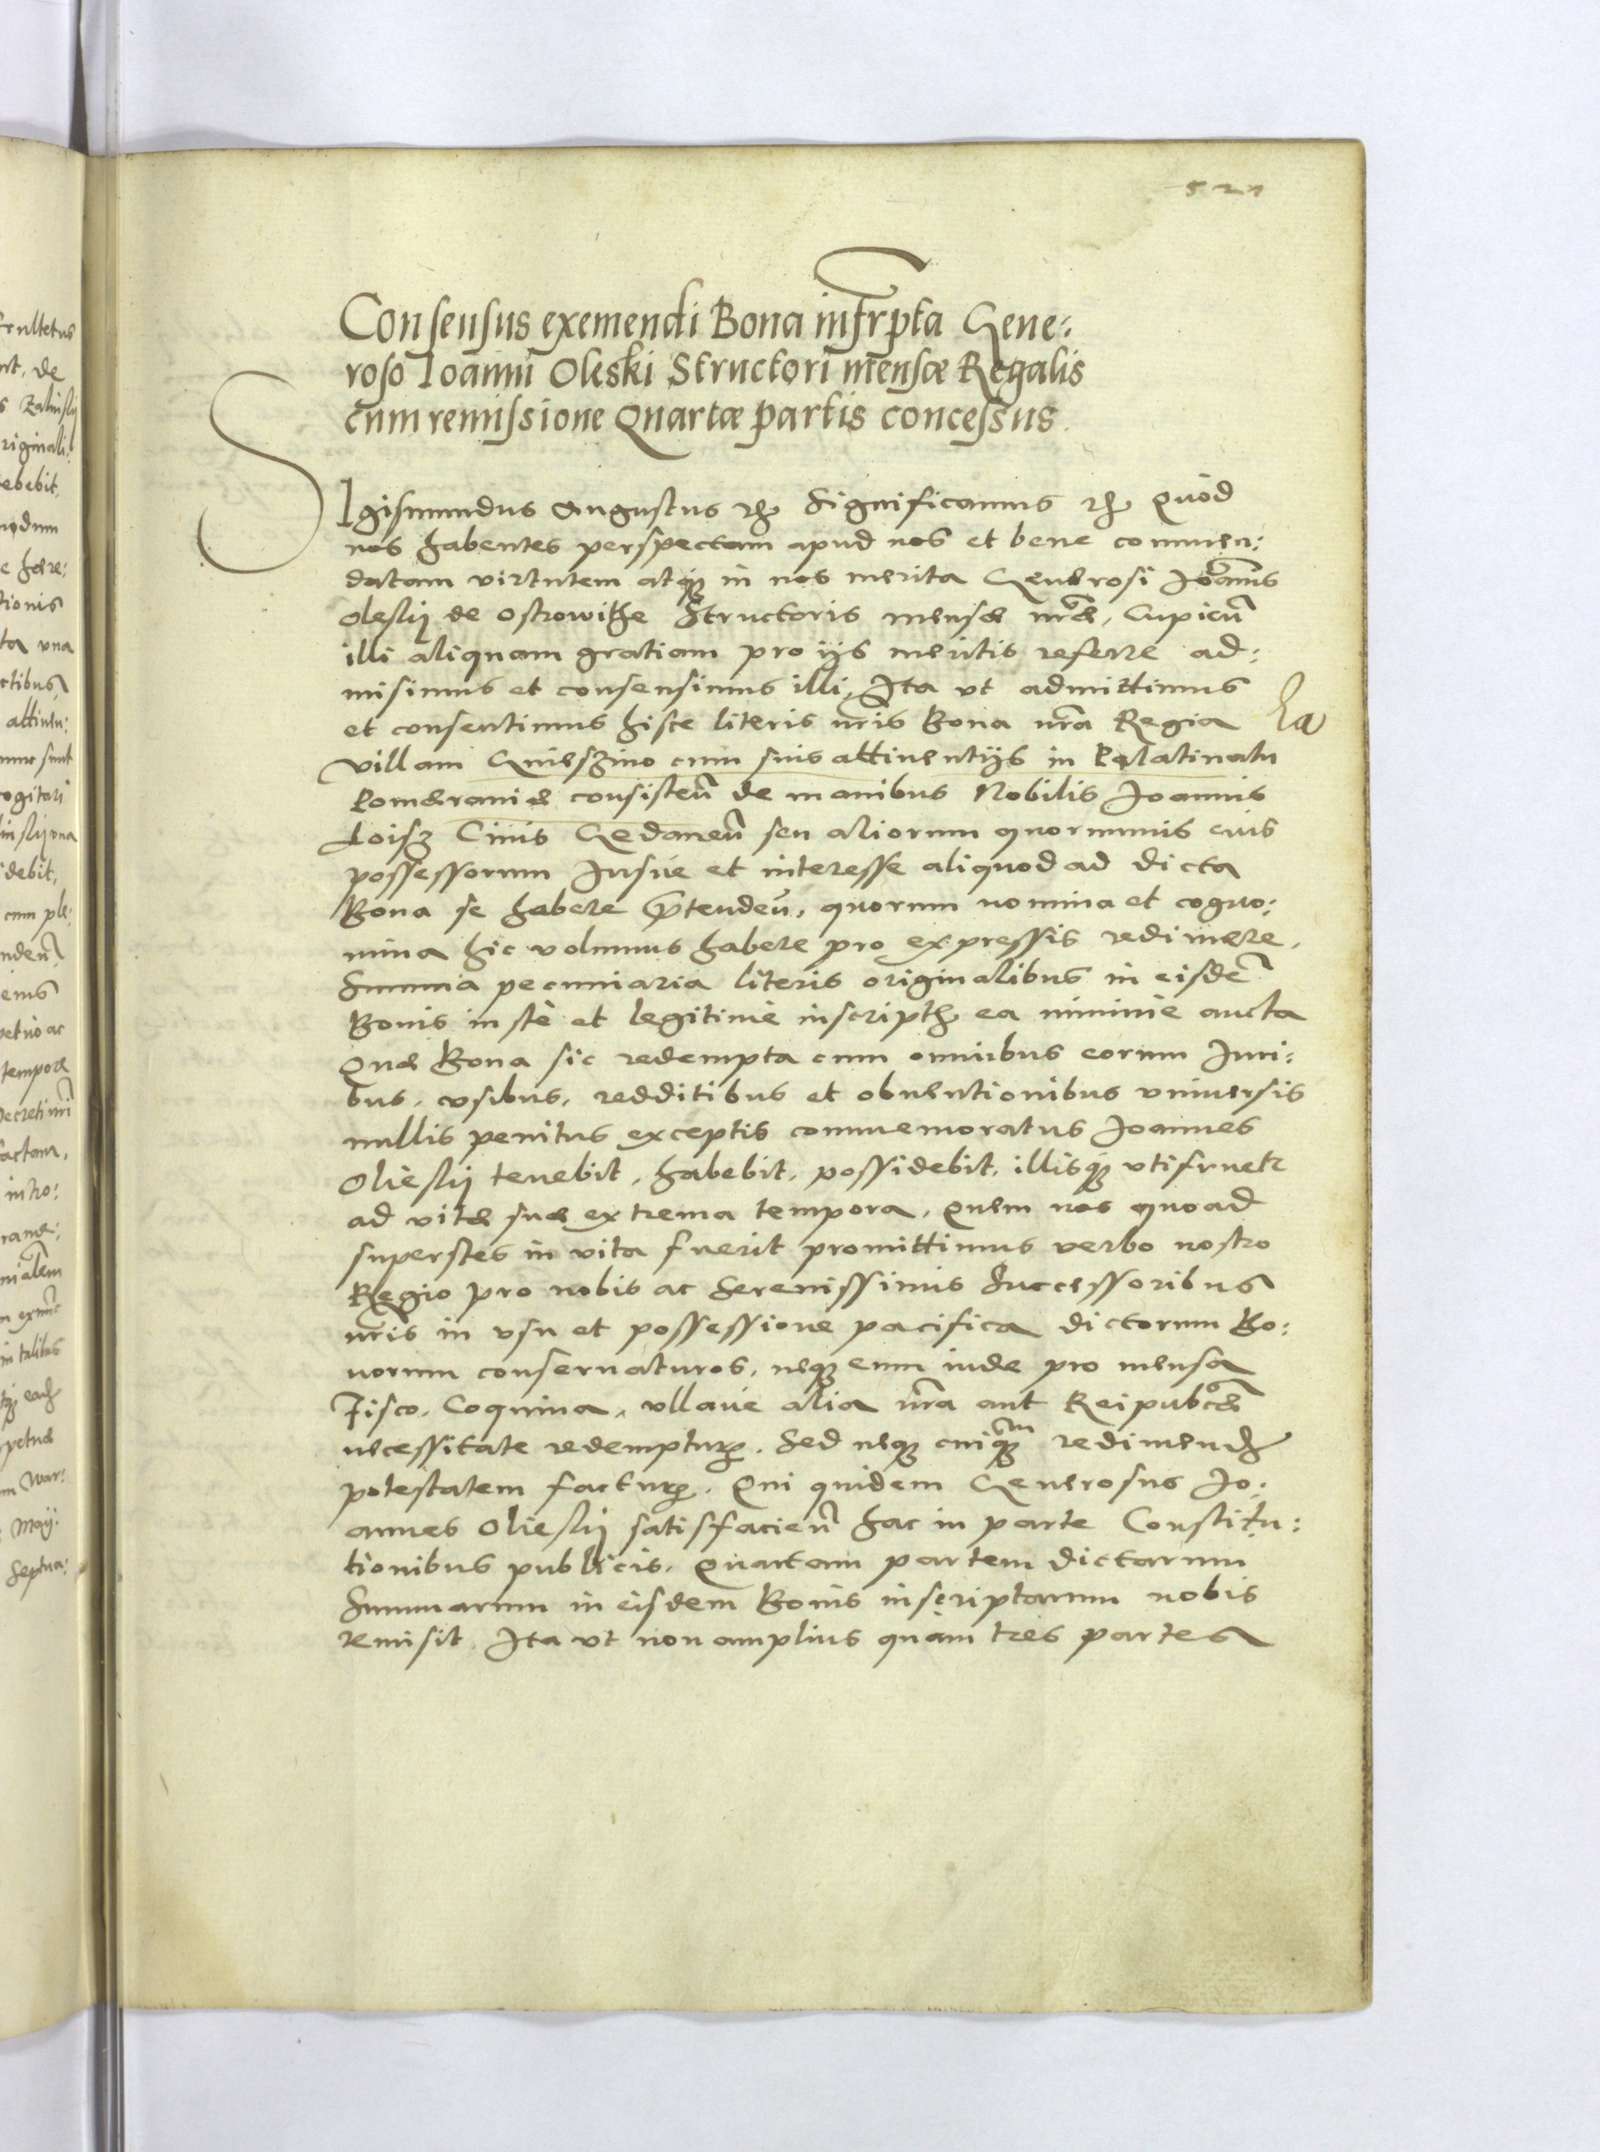 521
Consensus exemendi Bona infrpta Gene:
roso Ioanni Oleski Structori mensæ Regalis
cum remissione Quartæ partis concessus.
SIgismundus Augustus etc Significamus etc Quod
nos habentes perspectam apud nos et bene commen:
datam virtutem atq in nos merita Generosi Ioānis
Oleslij de Ostrowithe Structoris mensæ nræ, Cupien
illi aliquam gratiam pro ijs meritis referre ad:
misimus et consensimus illi, Ita vt admittimus
et consentimus hisce literis nris Bona nra Regia
villam Gnieszino cum suis attinentijs in Palatinatu
Pomeraniæ consisten de manibus Nobilis Joannis
Loisz Ciuis Gedanen seu aliorum quorumuis eius
possessorum Iusue et interesse aliquod ad dicta
Bona se habere prtenden, quorum nomina et cogno:
mina hic volumus habere pro expressis redimere,
Summa pecuniaria literis originalibus in eisdē
Bonis iuste et legitime inscripth ea minime aucta
Quæ Bona sic redempta cum omnibus eorum Iuri:
bus, vsibus, redditibus et obuentionibus vniuersis
nullis penitus exceptis commemoratus Joannes
Olieslij tenebit, habebit, possidebit, illisq vtifruetr
ad vitæ suæ extrema tempora, Quem nos quoad
superstes in vita fuerit promittimus verbo nostro
Regio pro nobis ac Serenissimis Successoribus
nris in vsu et possessione pacifica dictorum Bo:
norum conseruaturos, neq eum inde pro mensa
Fisco, Coquina, vllaue alia nra aut Reipubcæ
necessitate redempturos. Sed neq cuiqm redimendi
potestatem facturos. Qui quidem Generosus Jo:
annes Olieslij satisfacien hac in parte Constitu:
tionibus publicis, Quartam partem dictarum
Summarum in eisdem Bonis inscriptarum nobis
remisit. Ita vt non amplius quam tres partes